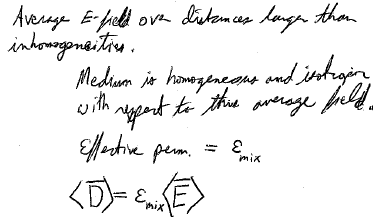 Average E-field over distances larger than
inhomogeneities.
Medium is homogeneous and isotropic
with respect to this average field.
Effective perm. = ε_mix
⟨D̅⟩ = ε_mix⟨E̅⟩